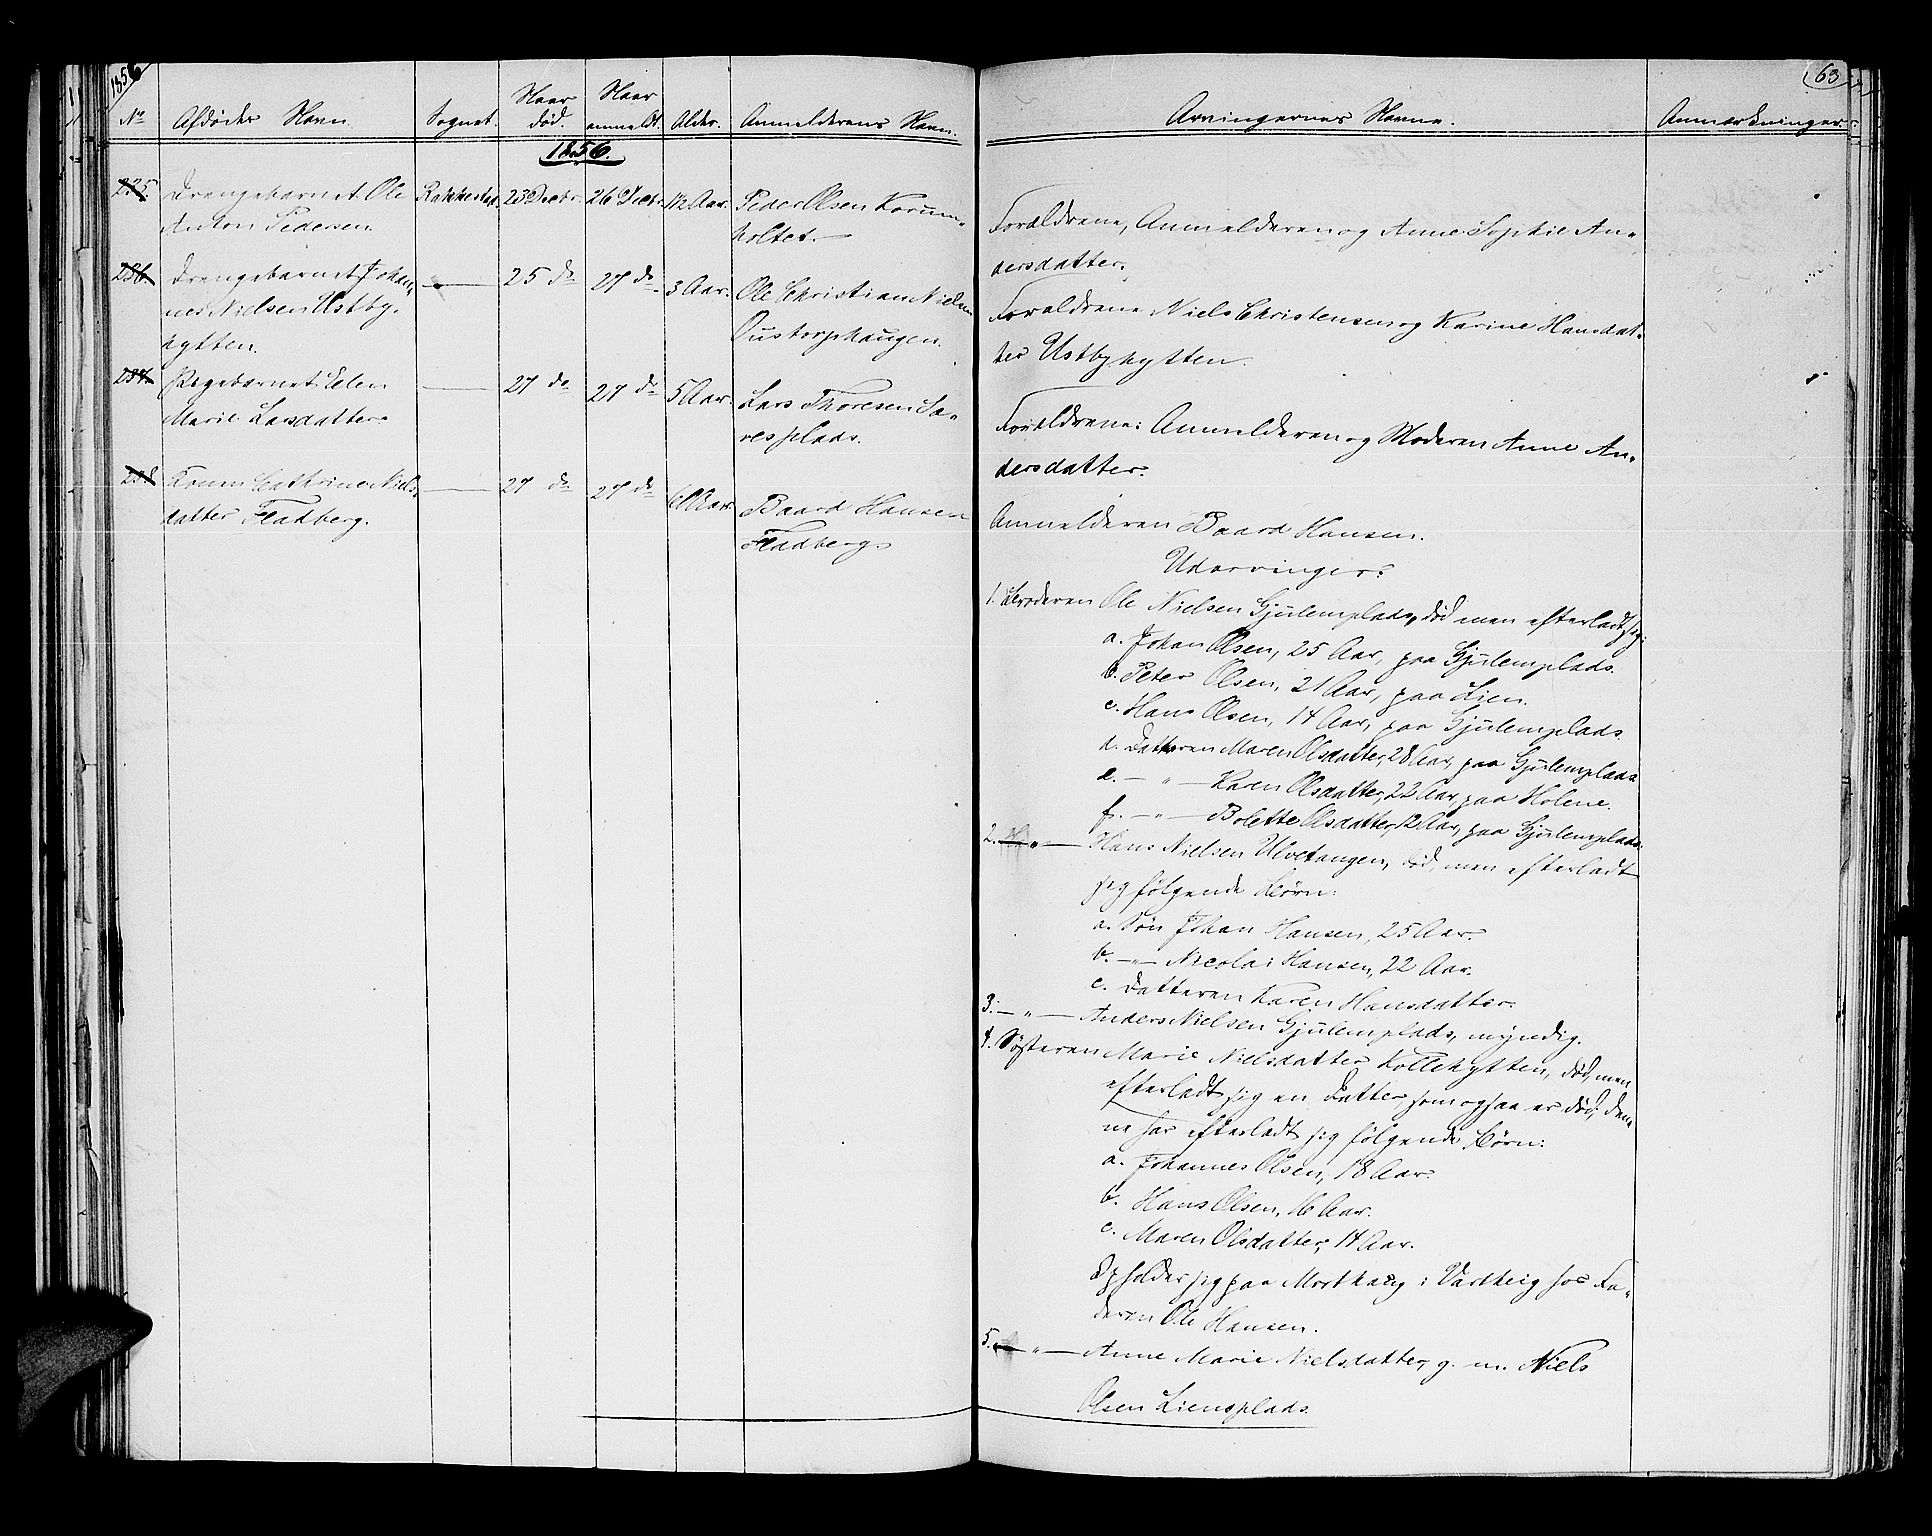 1856
63
No Afdødes Navn. Sognet. Naar død. Naar anmeldt. Alder. Anmelderens Navn. Arvingernes Navne. Anmærkninger.
1856.
235 Drengebarnet Ole Rakkestad. 23 Decbr. 26 Decbr. 1½ Aar. Peder Olsen Korum-
Anton Pedersen. holtet.
Forældrene, Anmelderen og Anne Sophie An-
dersdatter.
236. Drengebarnet Johan- 25 do 27 do 3 Aar. Ole Christian Nielsen
nes Nielsen Ustby- Oustorphaugen.
hytten.
Forældrene Niels Christensen og Karine Hansdat-
ter Ustbyhytten.
237. Pigebarnet Elen 27 do 27 do 5 Aar. Lars Thoresen Sa-
Marie Larsdatter. resplads.
Forældrene: Anmelderen og Moderen Anne An-
dersdatter.
238 Konen Cathrine Niels- 27 do 27 do Aar. Baard Hansen
datter Fladberg. Fladberg.
Anmelderen Baard Hansen.
Udarvinger:
1. Broderen Ole Nielsen Gjulemplads, død men efterladt sig:
a. Johan Olsen, 25 Aar, paa Gjulemplads.
b. Peter Olsen, 21 Aar, paa Lien.
c. Hans Olsen, 14 Aar, paa Gjulemplads
d. Datteren Maren Olsdatter, 28 Aar, paa Gjulemplads
e. — " — Karen Olsdatter, 22 Aar, paa Holene.
f. — " — Bolette Olsdatter, 12 Aar, paa Gjulemplads.
2. — " — Hans Nielsen Ulvetangen, død, men efterladt
sig følgende Børn:
a. Søn Johan Hansen, 25 Aar.
b. — " — Nicolai Hansen, 22 Aar.
c. Datteren Karen Hansdatter.
3. — " — Anders Nielsen Gjulemplads, myndig.
4. Søsteren Marie Nielsdatter Kollehytten, død, men
efterladt sig en Datter som ogsaa er død; den-
ne har efterladt sig følgende Børn:
a. Johannes Olsen, 18 Aar.
b. Hans Olsen, 16 Aar.
c. Maren Olsdatter, 14 Aar.
Opholder sig paa Morthaug i Varteig hos Fa-
deren Ole Hansen.
5. — " — Anne Marie Nielsdatter, g. m. Niels
Olsen Liensplads.